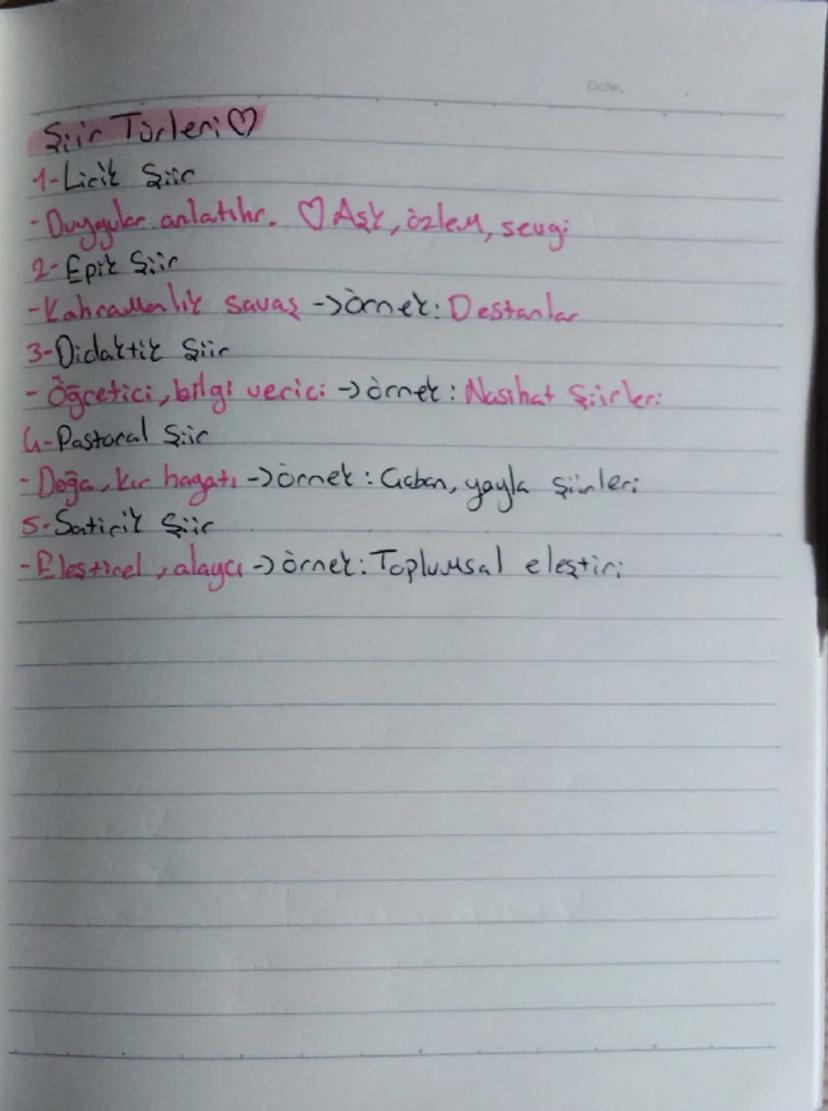 Date.
Şiir Türleri ♡
1-Lirik Şiir
-Duygular anlatılır. ♡ Aşk, özlem, sevgi
2-Epik Şiir
-Kahramanlık savaş → örnek: Destanlar
3-Didaktik Şiir
- Öğretici, bilgi verici → örnek: Nasihat Şiirleri
4-Pastoral Şiir
-Doğa, kır hayatı → örnek: Çoban, yayla şiirleri
5-Satirik Şiir
-Eleştirel, alaycı → örnek: Toplumsal eleştiri